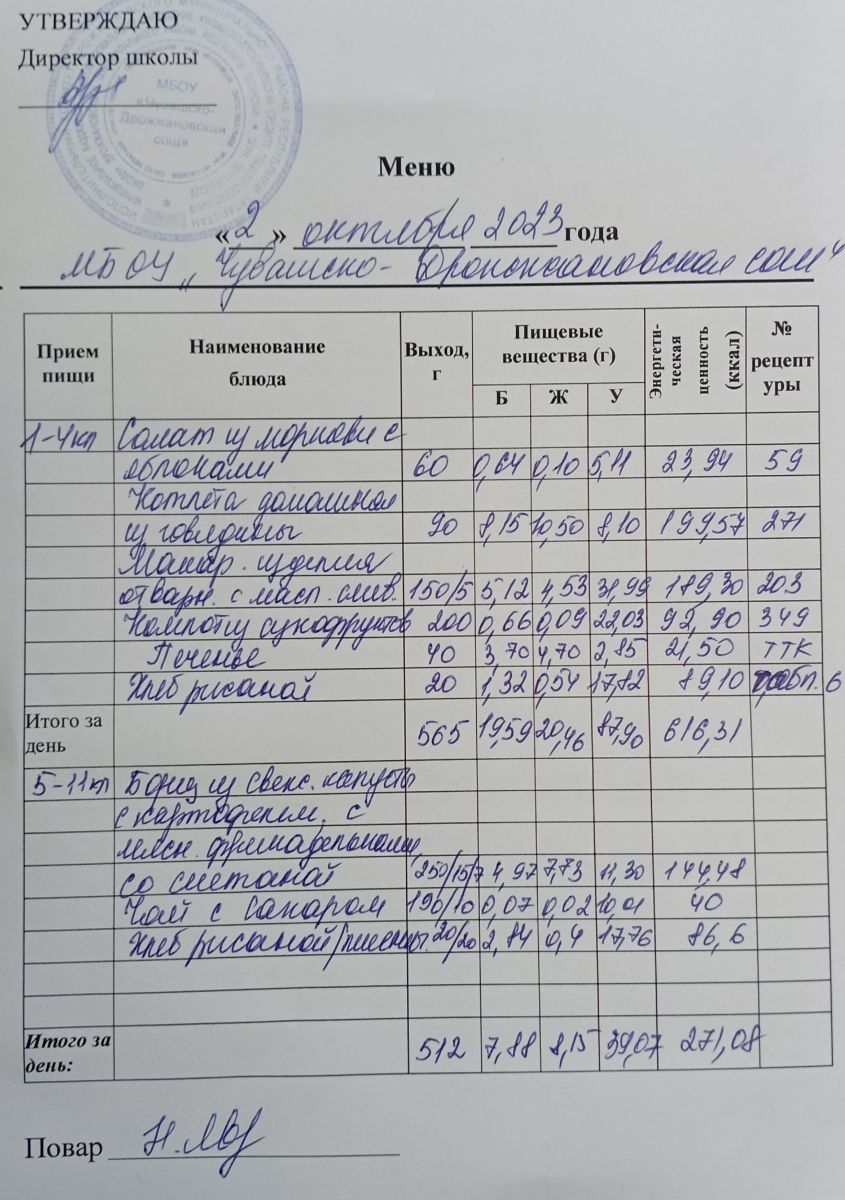 УТВЕРЖДАЮ
Директор школы
МБОУ
«Чувашско-
Дрожжановская
сош»
Меню
«2» октября 2023 года
МБОУ „Чувашско-Дрожжановская сош“
Прием пищи Наименование блюда Выход, г Пищевые вещества (г) Энергети-ческая ценность (ккал) № рецептуры
Б Ж У
1-4кл Салат из моркови с
яблоками 60 0,64 0,10 5,11 23,94 59
Котлета домашняя
из говядины 90 8,15 10,50 8,10 199,57 271
Макар. изделия
отварн. с масл. слив. 150/5 5,12 4,53 31,99 189,30 203
Компот из сухофруктов 200 0,66 0,09 22,03 92,90 349
Печенье 40 3,70 4,70 2,85 21,50 ТТК
Хлеб ржаной 20 1,32 0,54 17,82 89,10 табл. 6
Итого за день 565 19,59 20,46 87,90 616,31
5-11кл Борщ из свеж. капусты
с картофелем, с
мясн. фрикадельками,
со сметаной 250/15/7 4,97 7,73 11,30 144,48
Чай с сахаром 190/10 0,07 0,02 10,01 40
Хлеб ржаной/пшенич. 20/20 2,84 0,4 17,76 86,6
Итого за день: 512 7,88 8,15 39,07 271,08
Повар